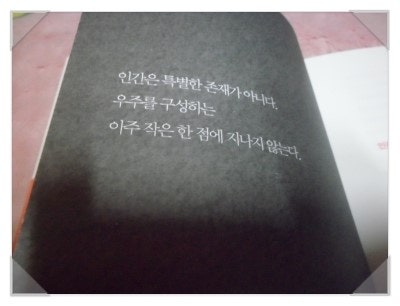 인간은 특별한 존재가 아니다.
우주를 구성하는
아주 작은 한 점에 지나지 않는다.